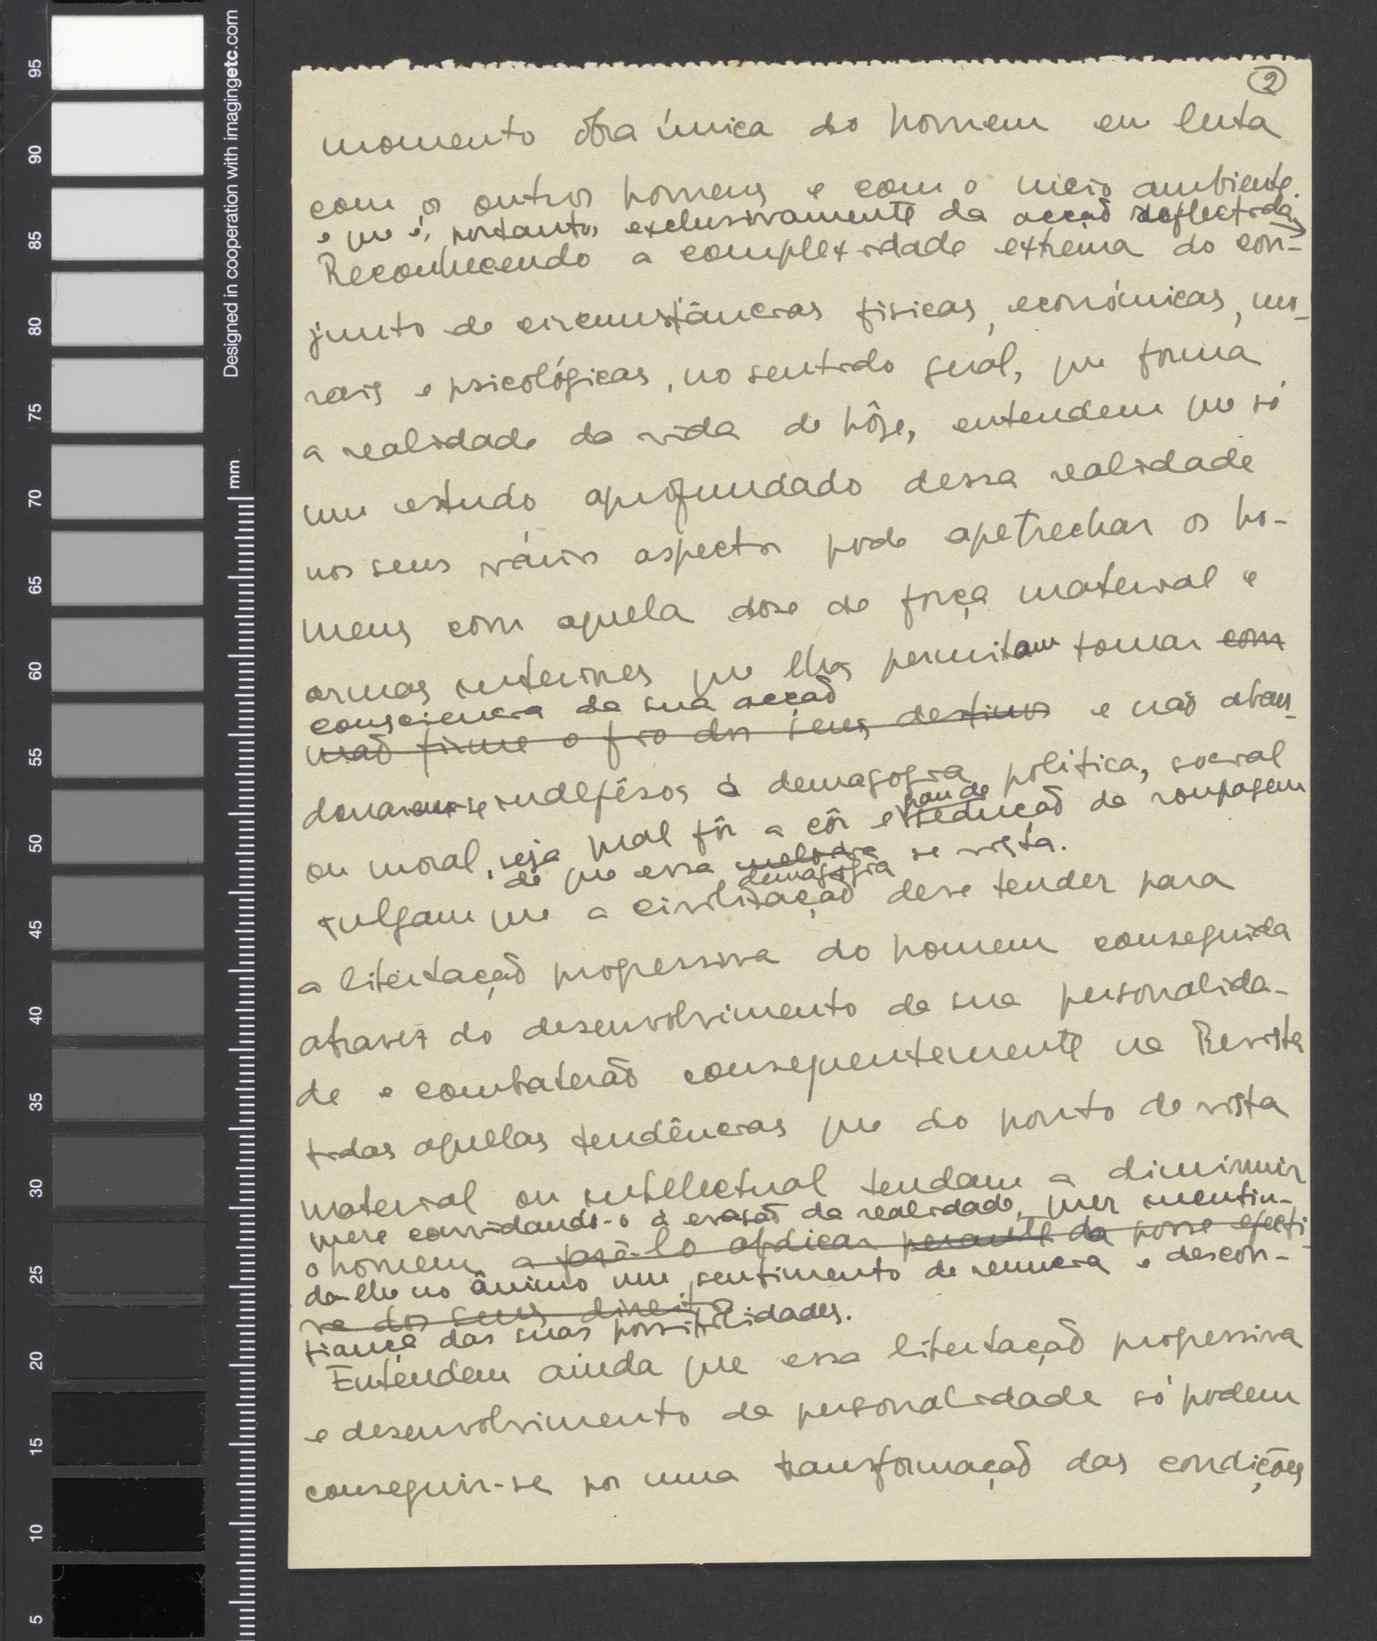 95
90
85
80
75
70
65
60
55
50
45
40
35
30
25
20
15
10
5
Designed in cooperation with imagingetc.com
mm
2
momento obra única do homem em luta
com os outros homens e com o meio ambiente.
e que é, portanto, exclusivamente da acção reflectida
Reconhecendo a complexidade extrema do con-
junto de circunstâncias fisicas, económicas, mo-
rais e psicológicas, no sentido geral, que forma
a realidade da vida de hôje, entendem que só
um estudo aprofundado dessa realidade
nos seus vários aspectos pode apetrechar os ho-
mens com aquela dose de força material e
armas interiores que lhes permitam tomar com
consciencia da sua acção
mão firme o fio dos seus destinos e não aban-
donarem-se indefêsos à demagogia politica, social
ou moral, seja qual fôr a côr e grande sedução da roupagem
de que essa melodia demagogia se vista.
Julgam que a civilização deve tender para
a libertação progressiva do homem conseguida
através do desenvolvimento da sua personalida-
de e combaterão consequentemente na Revista
todas aquelas tendências que do ponto de vista
material ou intellectual tendam a diminuir
quer convidando-o à evasão da realidade, quer incutin-
o homem, a fazê-lo abdicar perante da posse efecti-
do-lhe no ânimo um sentimento de renuncia e descon-
va dos seus direitos
fiança das suas possibilidades.
Entendem ainda que essa libertação progressiva
e desenvolvimento da personalidade só podem
conseguir-se por uma transformação das condições